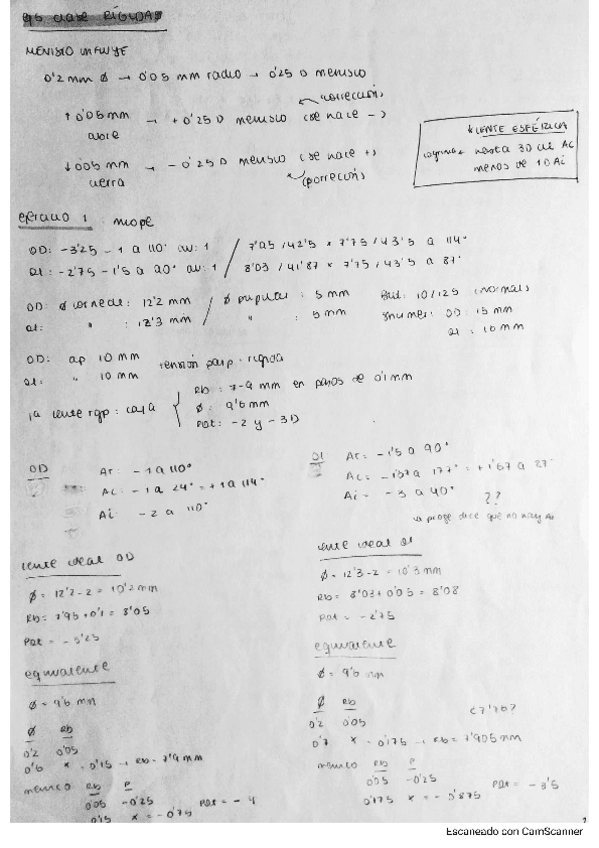 MENISCO INFLUYE
0'2 mm ∅ → 0'05 mm radio → 0'25 D menisco
↑ 0'05 mm → + 0'25 D menisco (se hace -)
abre
↓ 005 mm → - 0'25 D menisco (se hace +)
cierra
* LENTE ESFÉRICA
hasta 30 de AC
menos de 1D Ai
EJERCICIO 1 : miope
OD: -3'25 -1 a 110° av: 1 / 7'95 / 42'5 * 7'75 / 43'5 a 114°
OI: -2'75 -1'5 a 90° av: 1 / 8'03 / 41'87 * 7'75 / 43'5 a 87°
OD: ∅ corneal: 12'2 mm / ∅ pupilar: 5 mm But: 10/12s (normal)
OI: " : 12'3 mm " : 5 mm Schirmer: OD: 15 mm
OI: 16 mm
OD: ap 10 mm tensión parp: rígida
OI: " 10 mm
1ª lente rgp: caja
Rb: 7-9 mm en pasos de 0'1 mm
∅: 9'6 mm
Pot: -2 y -3D
OD
Ar: -1 a 110°
Ac: -1 a 24° = +1 a 114°
Ai: -2 a 110°
OI
Ar: -1'5 a 90°
Ac: -1'37 a 177° = +1'67 a 27°
Ai = -3 a 40° ??
la profe dice que no hay Ai
Lente ideal OD
∅ = 12'2 - 2 = 10'2 mm
Rb = 7'95 + 0'1 = 8'05
Pot = -3'25
Lente ideal OI
∅ = 12'3 - 2 = 10'3 mm
Rb = 8'03 + 0'05 = 8'08
Pot = -2'75
equivalente
∅ = 9'6 mm
∅ Rb
0'2 0'05
0'6 x = 0'15 → Rb = 7'9 mm
menisco Rb P
0'05 -0'25
0'15 x = -0'75 Pot = -4
equivalente
∅ = 9'6 mm
∅ Rb
0'2 0'05
0'7 x = 0'175 → Rb = 7'905 mm
menisco Rb P
0'05 -0'25
0'175 x = -0'875 Pot = -3'5
1
Escaneado con CamScanner